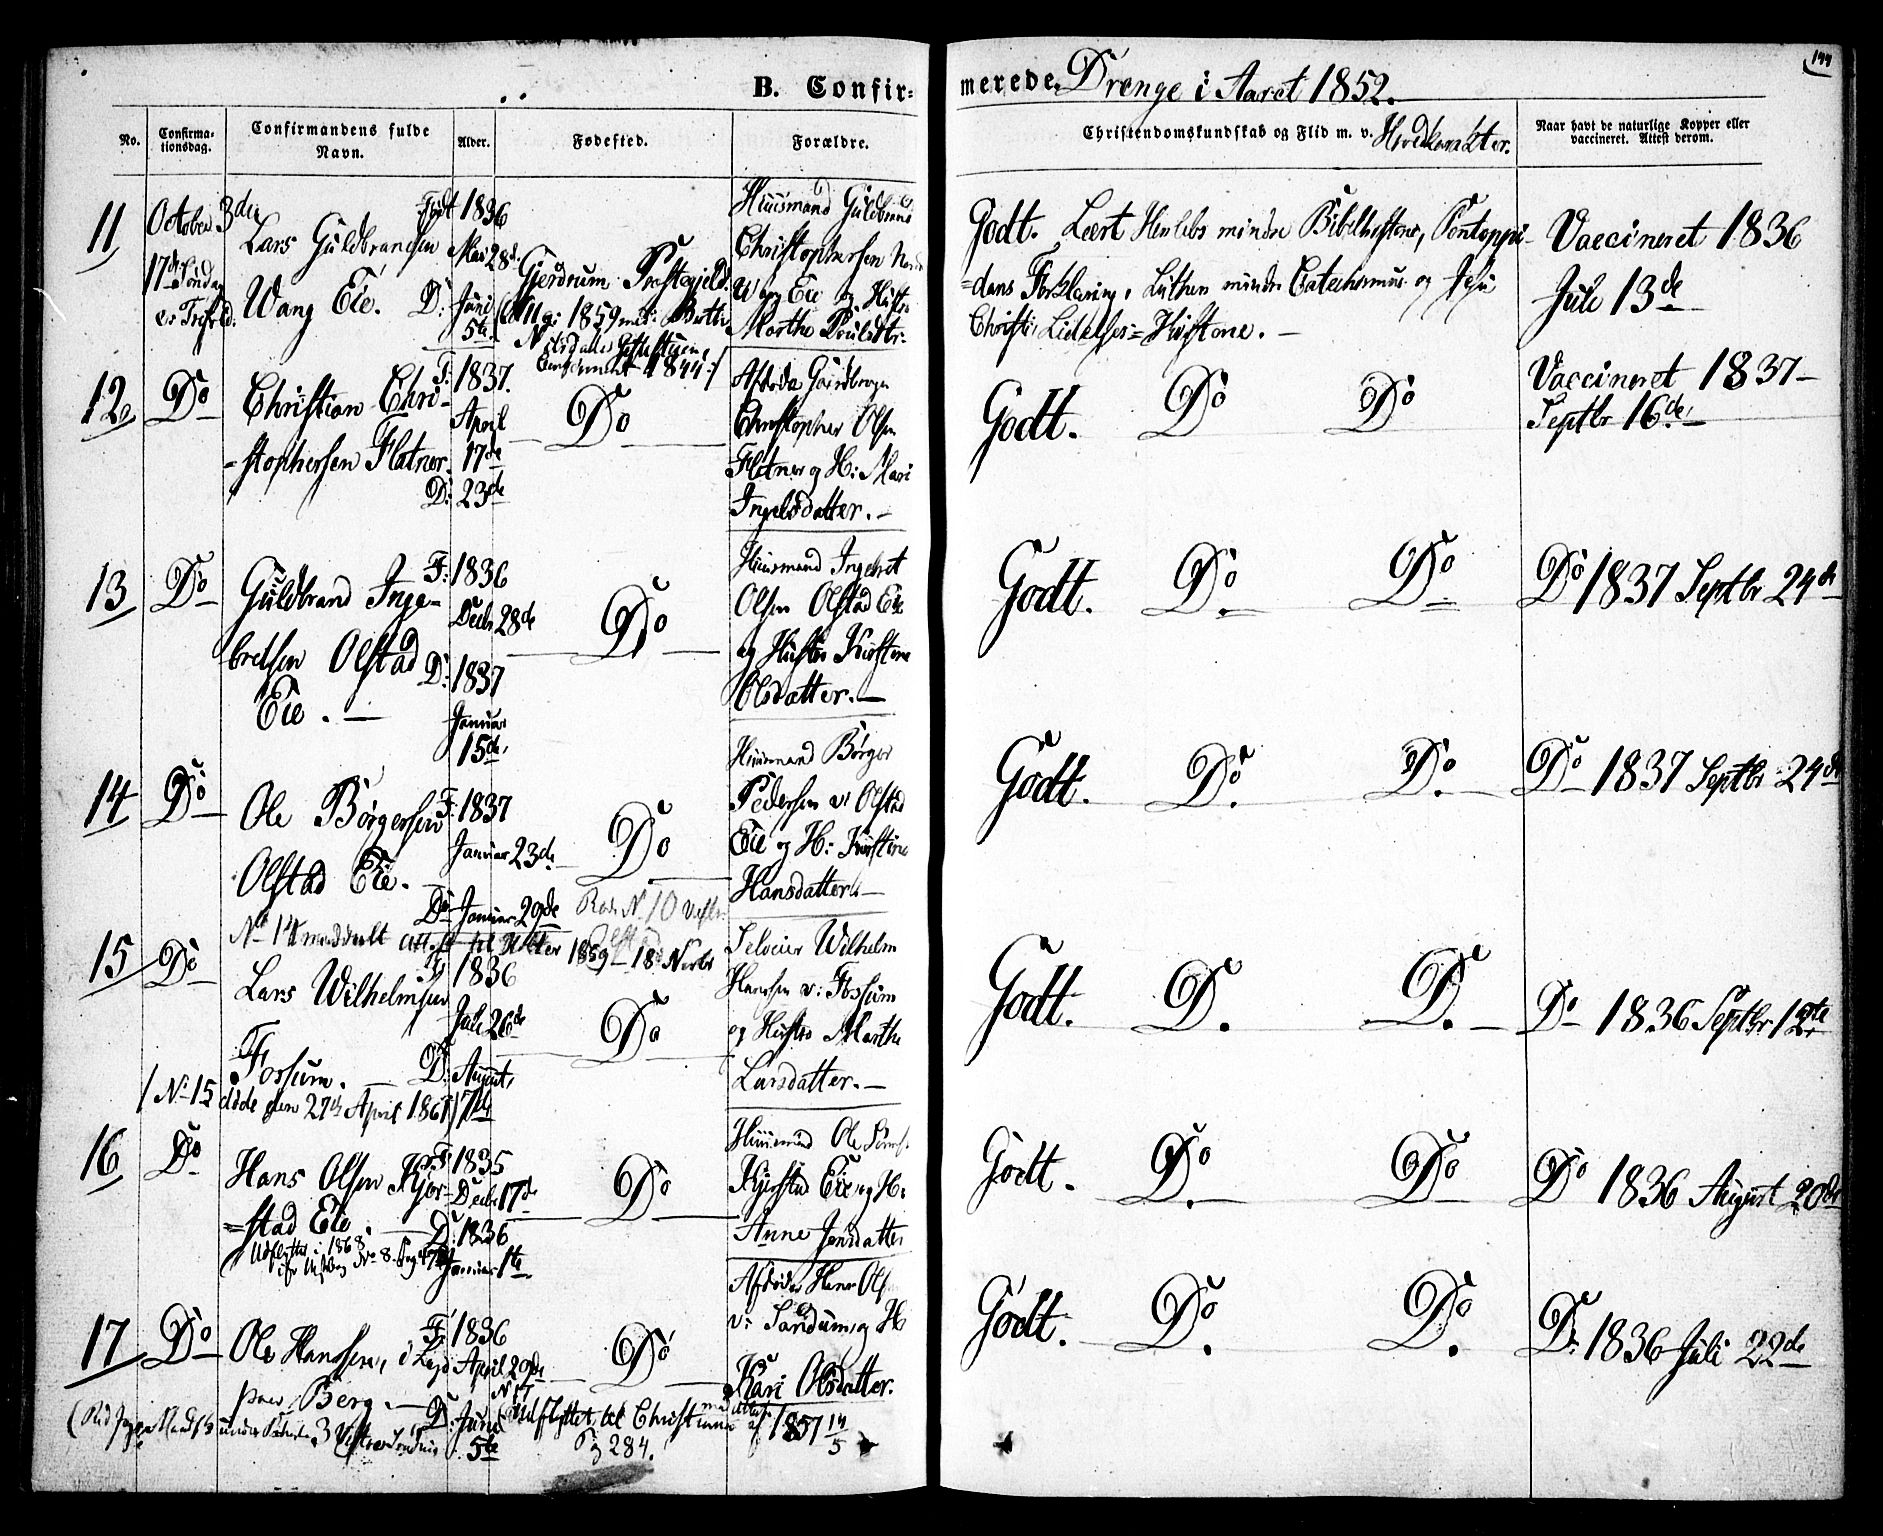 144
B. Confir=
merede Drenge i Aaret 1852.
No.
Confirma-
tionsdag.
Confirmandens fulde
Navn.
Alder.
Fødested.
Forældre.
Christendomskundskab og Flid m. v.
Naar havt de naturlige Kopper eller
vaccineret. Attest derom.
11
October 3die
17de Søndag
Lars Guldbrandsen
Wang Eie.
Født 1836
Mai 28de
D: Juni
5te
Gjerdrum Præstegjeld.
Huusmand Guldbrand
Christophersen
Wang Eie og Hustru
Marthe Poulsdtr.
Godt. Læst Herslebs mindre Bibelhistorie, Pontoppi-
=dans Forklaring, Luthers mindre Catechismus og Jesu
Christi Lidelses=Historie. —
Vaccineret 1836
Juli 13de
12
Do
Christian Chri-
=stophersen Flatner
F: 1837.
April
17de
D: 23de
Do
Christopher Olsen
Flatner og H: Mari
Ingelsdatter. —
Godt. Do Do
Vaccineret 1837
Septbr 16de
13
Do
Guldbrand Inge-
bretsen Olstad
Eie. —
F: 1836
Decbr 28de
D: 1837
Januar
15de
Do
Huusmand Ingebret
Olsen Olstad Eie
og Hustru Kirstine
Olsdatter. —
Godt. Do Do
Do 1837 Septbr 24de
14
Do
Ole Børgersen
Olstad Eie.
F: 1837
Januar 23de
Do Januar 29de
Do
Huusmand Børger
Pedersen v: Olstad
Eie og H: Kirstine
Hansdatter. —
Godt. Do Do
Do 1837 Septbr 24de
No 14 meddeelt Attest til 1859 18
15
Do
Lars Wilhelmsen
Fossum.
F: 1836
Juli 26de
D: August
7de
Do
Selveier Wilhelm
Hansen v: Fossum
og Hustru Marthe
Larsdatter. —
Godt. D. D.
Do 1836 Septbr 12te
No 15 døde den 27de April 1861
16
Do
Hans Olsen Kjer-
=stad Eie.
F: 1835
Decbr 17de
D: 1836
Januar 1te
Do
Huusmand Ole
Kjerstad Eie og H:
Anne Jensdatter
Godt. Do Do
Do 1836 August 20de
Udflyttet i 1868
No 8
17
Do
Ole Hanssen, i
paa Berg. —
F: 1836
April 29de
D: Juni
5te
Do
Afdøde Hans Olsen
v: Sandum og H
Kari Olsdatter.
Godt. Do Do
D: 1836 Juli 22de
No 17
Udflyttet til Christiania
1857 14/5
284.